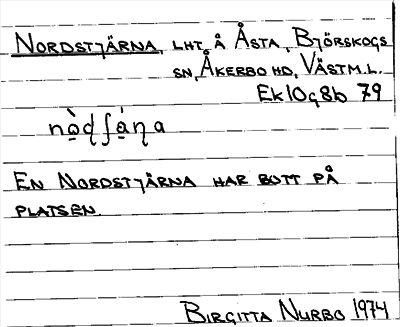 NORDSTJÄRNA, LHT. Å ÅSTA, BJÖRSKOGS
SN, ÅKERBO HD, VÄSTM.L.
Ek10g8b 79
EN NORDSTJÄRNA HAR BOTT PÅ
PLATSEN.
BIRGITTA NURBO 1974